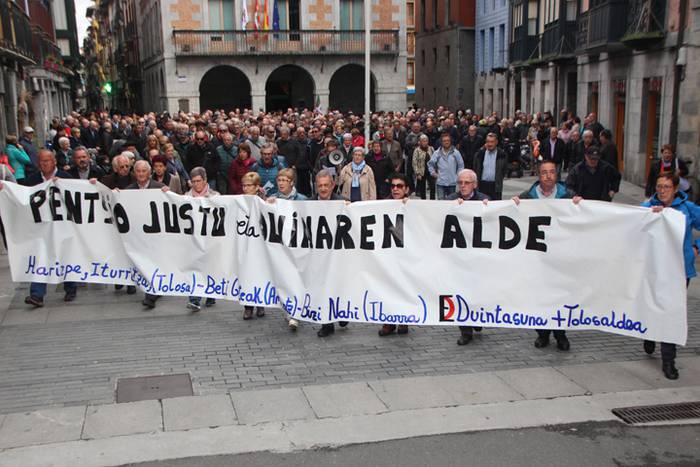 PENTSIO JUSTU eta DUINAREN ALDE
Harizpe, Iturritza (Tolosa) - Beti Gazteak (Anoeta) - Bizi Nahi (Ibarra) Duintasuna + Tolosaldea